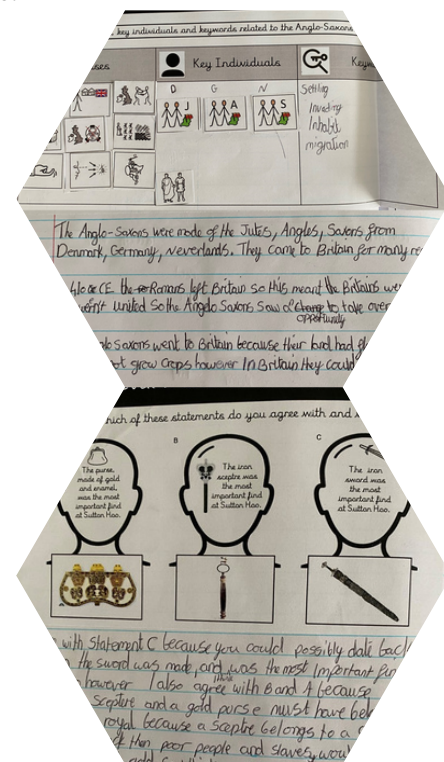 key individuals and keywords related to the Anglo-Saxons
Key Individuals
D G N
J A S
Settling
Invading
Inhabit
migration
The Anglo-Saxons were made of the Jutes, Angles, Saxons from
Denmark, Germany, Neverlands. They came to Britain for many
CE the Romans left Britain so this meant the Britains
united so the Angelo Saxons Saw a change to take over
opportunity
Saxons went to Britain because their land had
not grow crops however In Britain they could
hich of these statements do you agree with and
The purse,
made of gold
and enamel,
was the most
important find
at Sutton Hoo.
B
The iron
sceptre was
the most
important find
at Sutton Hoo.
C
The iron
sword was
the most
important find
at Sutton Hoo.
with Statement C because you could possibly date back
the sword was made, and was the most important
however I also agree with B and A because
sceptere and a gold purse must have
royal because a sceptre belongs to a
then poor people and slaves